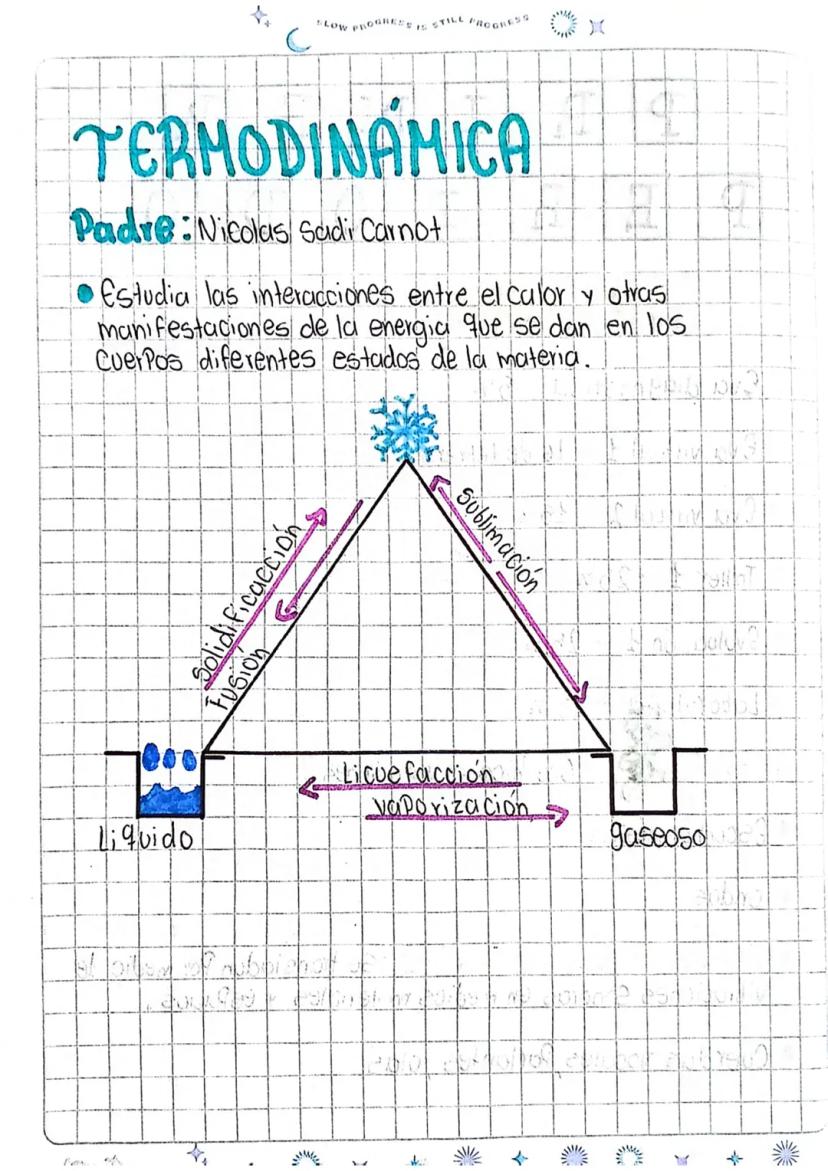 SLOW PROGRESS IS STILL PROGRESS
TERMODINÁMICA
Padre: Nicolas Sadi Carnot
• Estudia las interacciones entre el calor y otras
manifestaciones de la energia que se dan en los
cuerpos diferentes estados de la materia.
Solidificacción
Fusión
Sublimación
Licuefacción
vaporización
Liquido
gaseoso